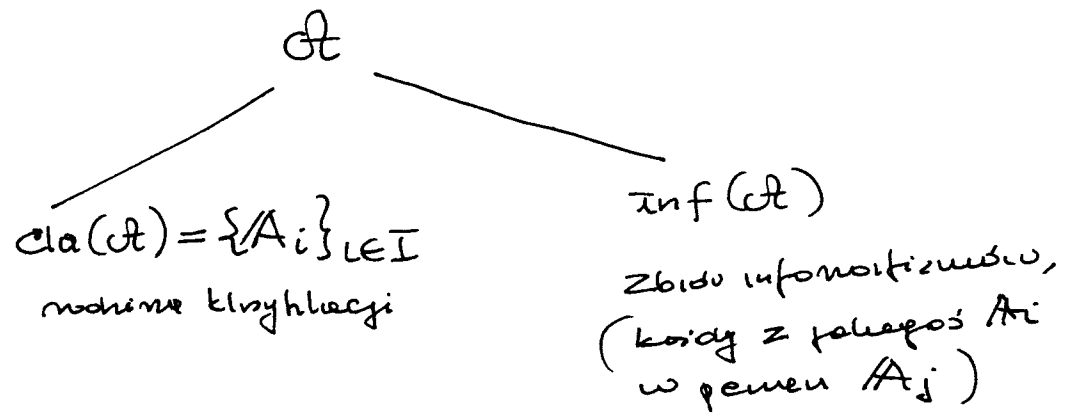 𝒜
cla(𝒜) = {𝔸i}i∈I
rodzina klasyfikacji
inf(𝒜)
zbiór infomorfizmów,
(każdy z jakiegoś 𝔸i
w pewien 𝔸j)